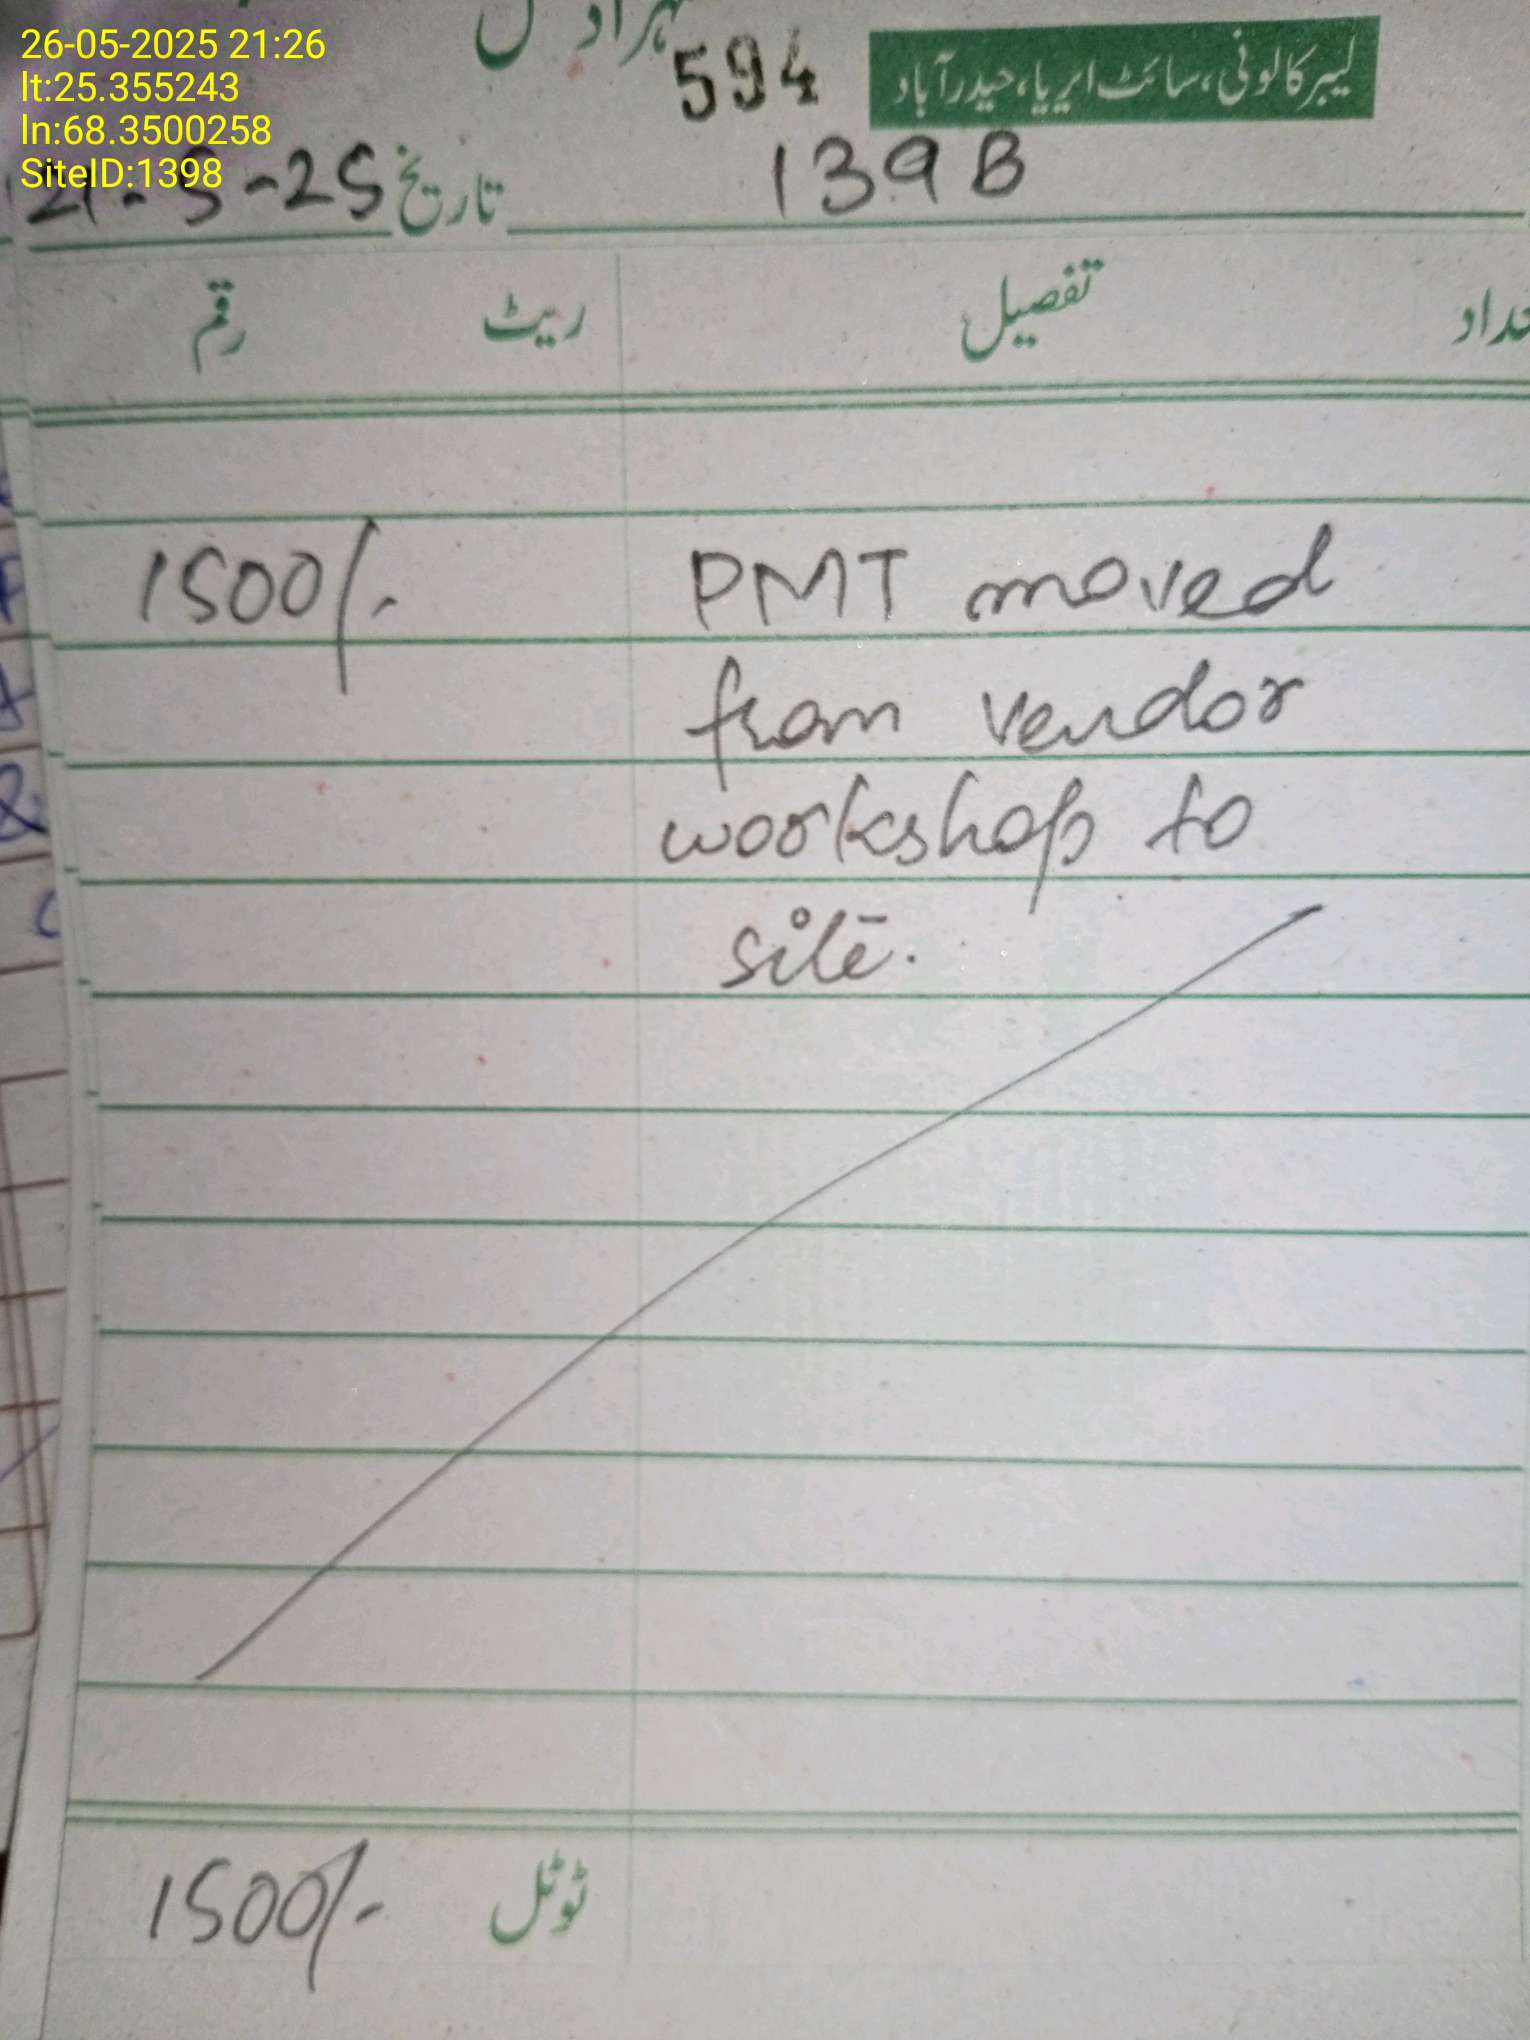 26-05-2025 21:26
lt:25.355243
ln:68.3500258
SiteID:1398
594
لیبر کالونی، سائٹ ایریا، حیدرآباد
139B
تاریخ 21-5-25
تفصیل ریٹ رقم
PMT moved 1500/-
from vendor
workshop to
site.
ٹوٹل 1500/-